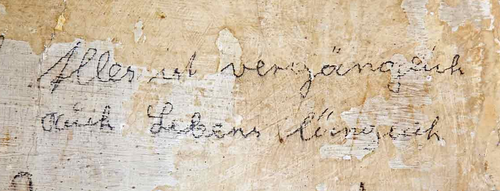 Alles ist vergänglich
auch Lebenslänglich